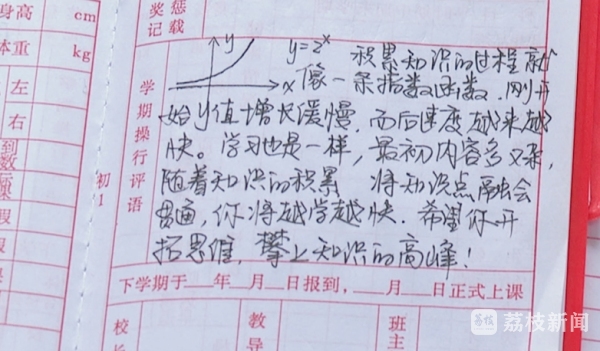 身高
cm
体重
kg
左
右
奖惩
记载
学期操行评语
初1
y
x
y=2ˣ 积累知识的过程就
像一条指数函数，刚开
始y值增长缓慢，而后速度越来越
快。学习也是一样，最初内容多又杂，
随着知识的积累 将知识点融会
贯通，你将越学越快．希望你开
拓思维，攀上知识的高峰！
下学期于__年__月__日报到，__月__日正式上课
校
教导
班主
荔枝新闻